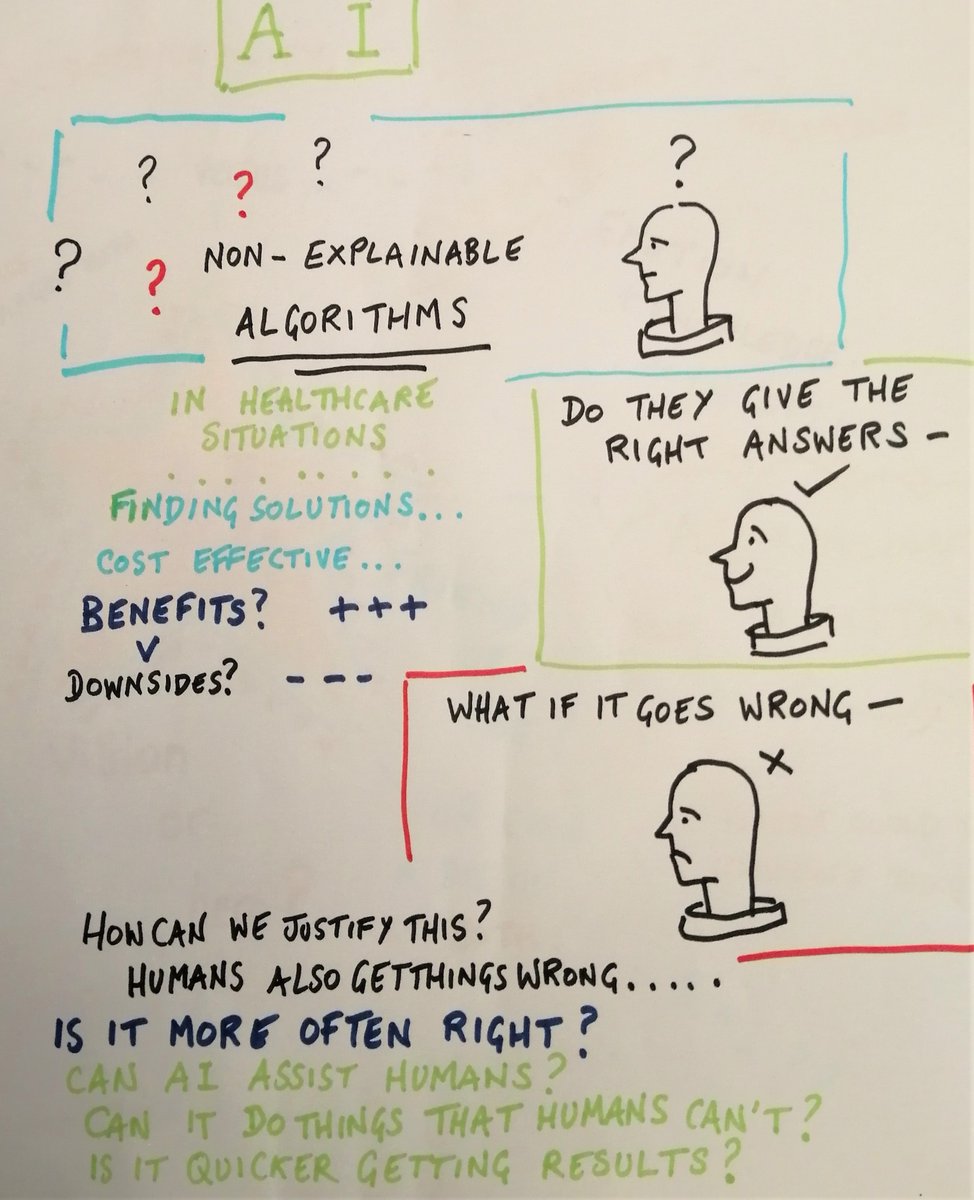 A I
? ? ?
? ? NON- EXPLAINABLE
ALGORITHMS
?
IN HEALTHCARE
SITUATIONS
.........
FINDING SOLUTIONS...
COST EFFECTIVE...
BENEFITS? +++
V
DOWNSIDES? ---
DO THEY GIVE THE
RIGHT ANSWERS -
WHAT IF IT GOES WRONG -
X
HOW CAN WE JUSTIFY THIS?
HUMANS ALSO GET THINGS WRONG.....
IS IT MORE OFTEN RIGHT?
CAN AI ASSIST HUMANS?
CAN IT DO THINGS THAT HUMANS CAN'T?
IS IT QUICKER GETTING RESULTS?